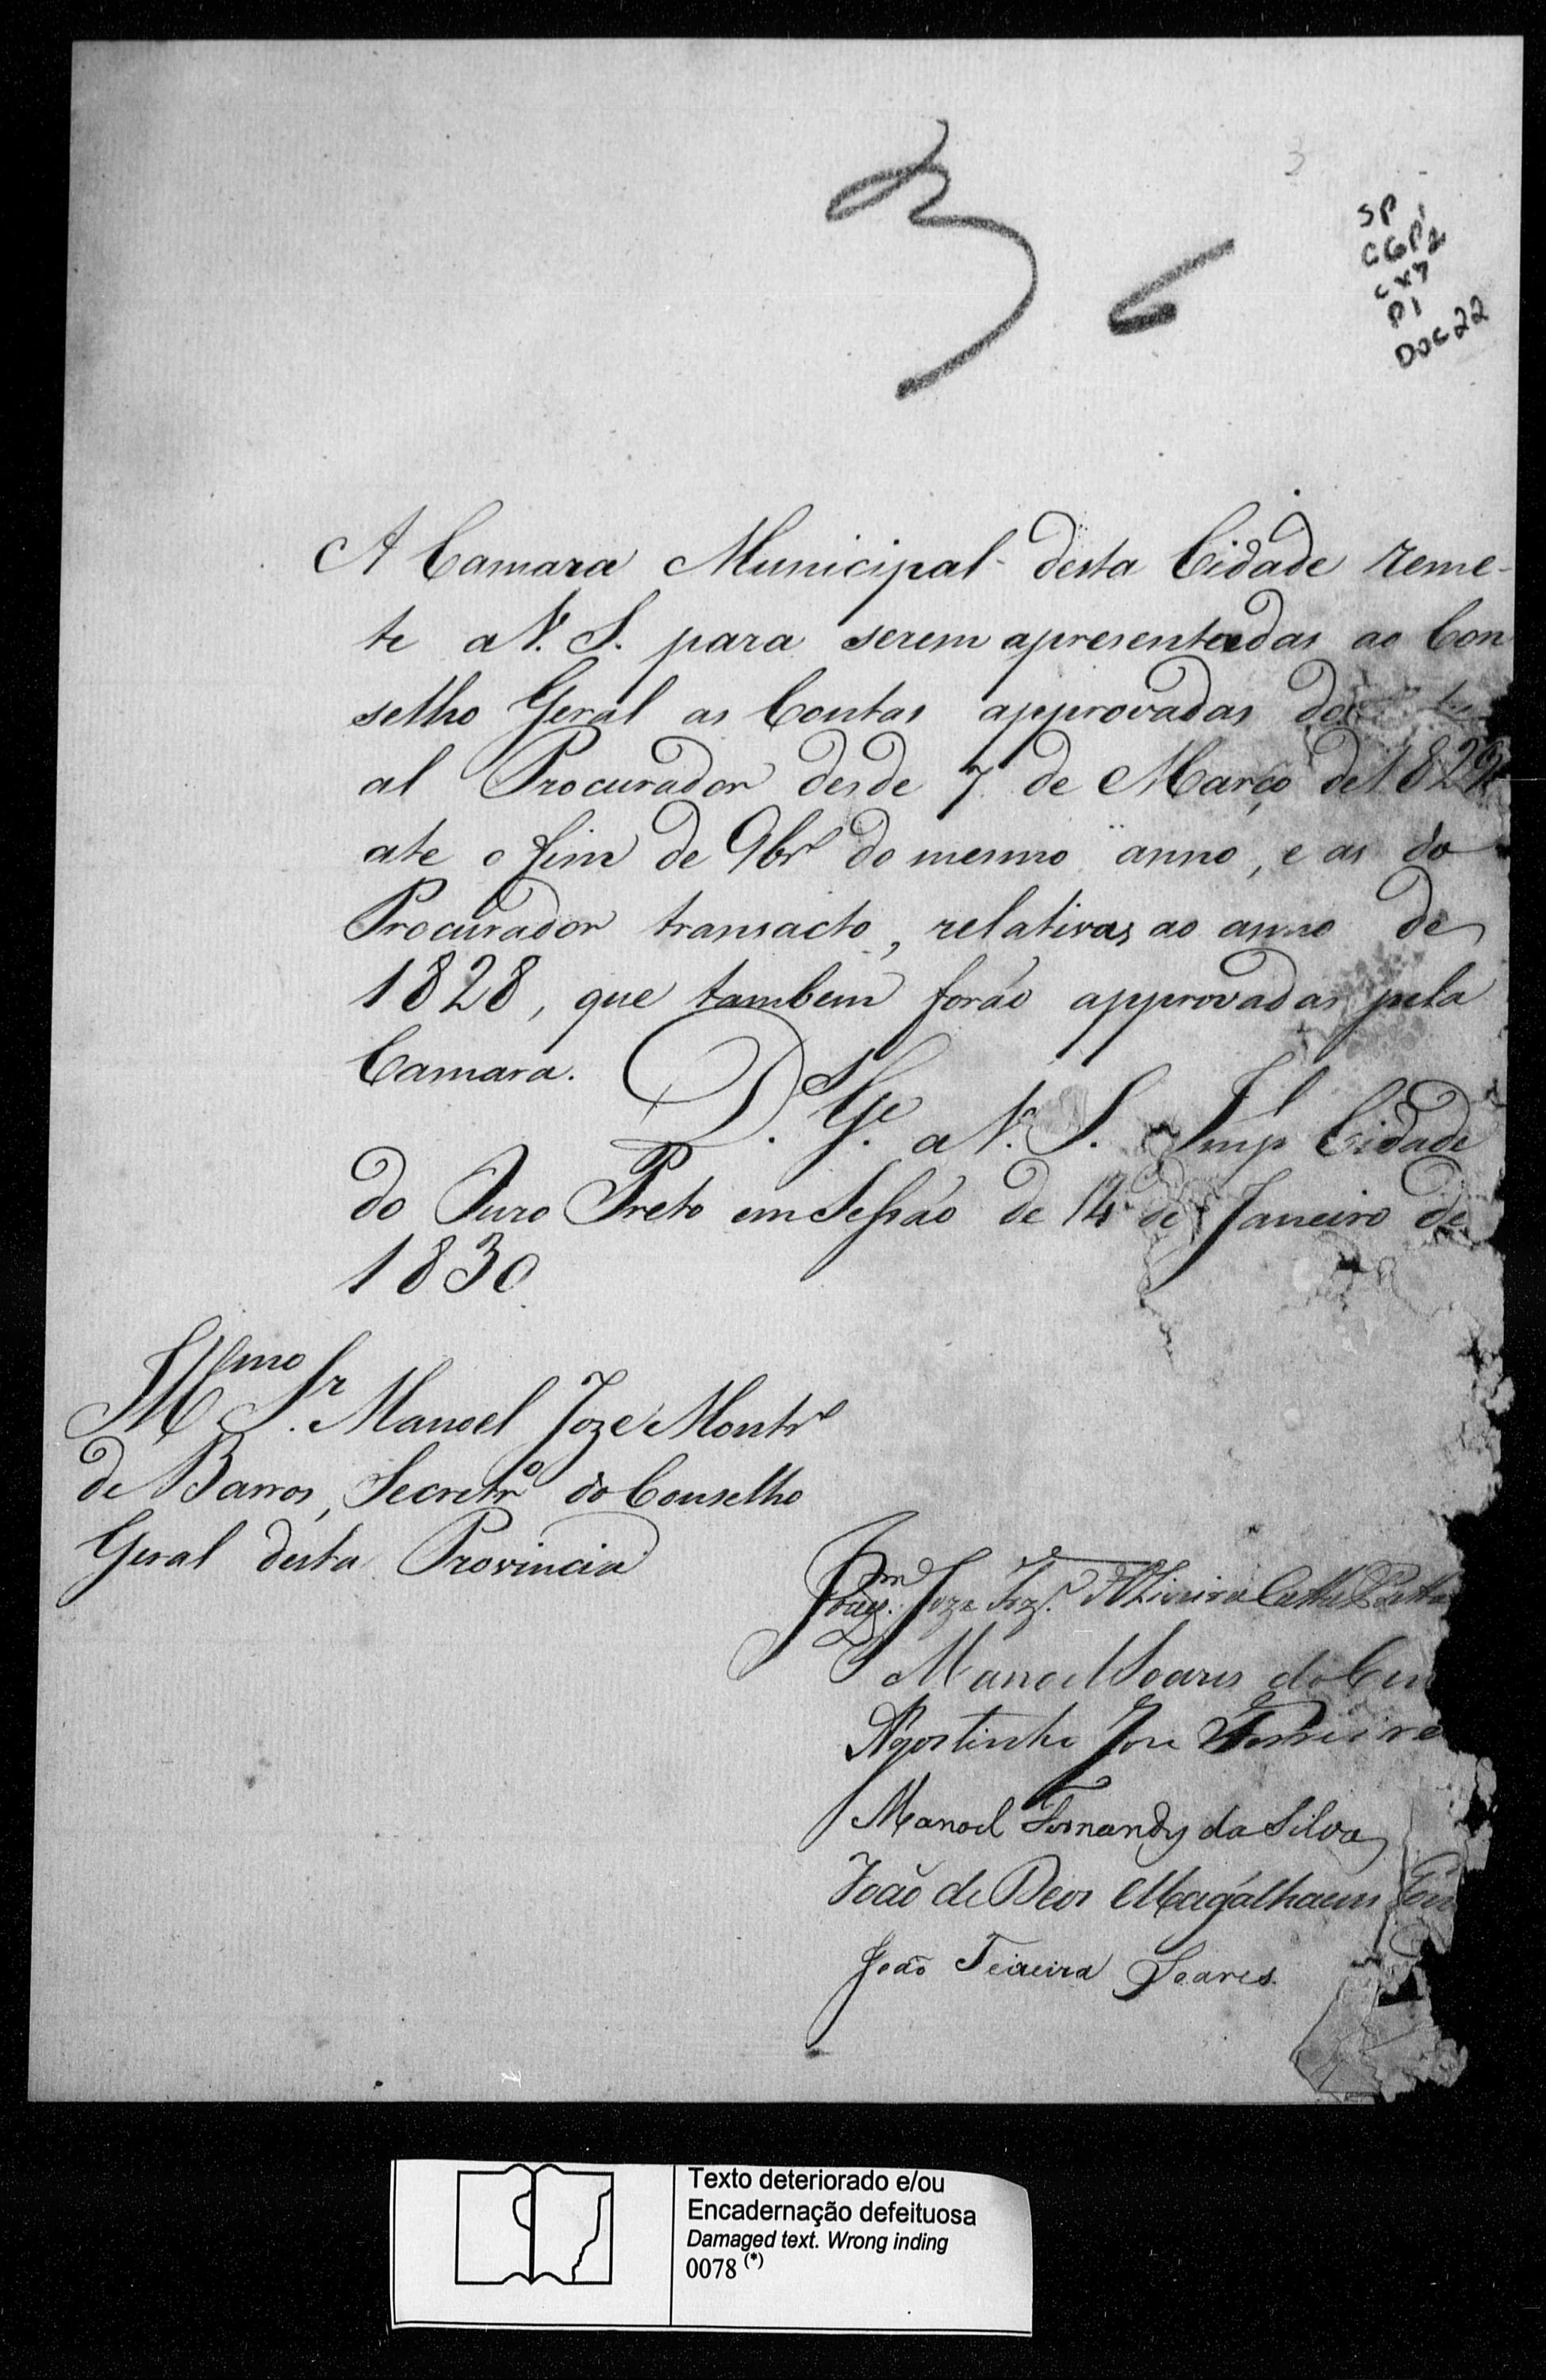 3
SP
CGP2
CX7
P1
DOC 22
A Camara Municipal desta Cidade reme-
te a V. S. para serem apresentadas ao Con
selho Geral as Contas approvadas do
al Procurador desde 7 de Março de 1829
ate o fim de 9brº do mesmo anno, e as do
Procurador transacto, relativas ao anno de
1828, que tambem forão approvadas pela
Camara.
D.s G.e a V.a S. Imp.l Cidade
do Ouro Preto em Sessão de 14 de Janeiro de
1830
Illmo Sr. Manoel Joze Montrº
de Barros, Secretrº do Conselho
Geral desta Provincia
Joze
Manoel Soares do
Agostinho Joze Ferreira
Manoel Fernandes da Silva
João de Deos Magalhaens
João Teixeira Soares
Texto deteriorado e/ou
Encadernação defeituosa
Damaged text. Wrong inding
0078 (*)